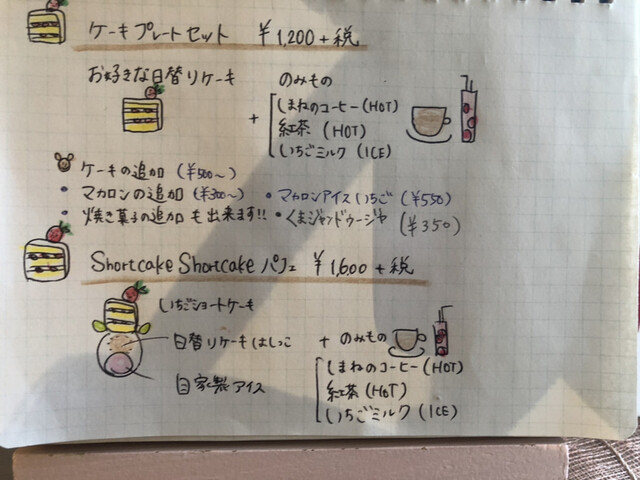 ケーキプレートセット ¥1,200+税
お好きな日替りケーキ
+
のみもの
しまねのコーヒー(HOT)
紅茶 (HOT)
いちごミルク (ICE)
ケーキの追加 (¥500〜)
・マカロンの追加 (¥300〜) ・マカロンアイスいちご (¥550)
・焼き菓子の追加も出来ます!! ・くまジャンドゥージャ (¥350)
Shortcake Shortcake パフェ ¥1,600+税
いちごショートケーキ
日替りケーキはしっこ
自家製アイス
+ のみもの
しまねのコーヒー(HOT)
紅茶 (HOT)
いちごミルク (ICE)